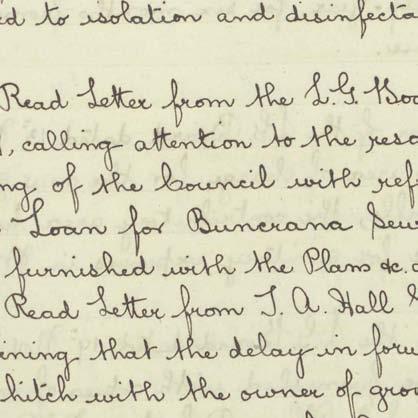 d to isolation and disinfecta
Read Letter from the L.G. Boa
, calling attention to the reso
ng of the Council with refe
Loan for Buncrana Sew
furnished with the Plans &c. o
Read Letter from T. A. Hall
ining that the delay in forw
hitch with the owner of grou